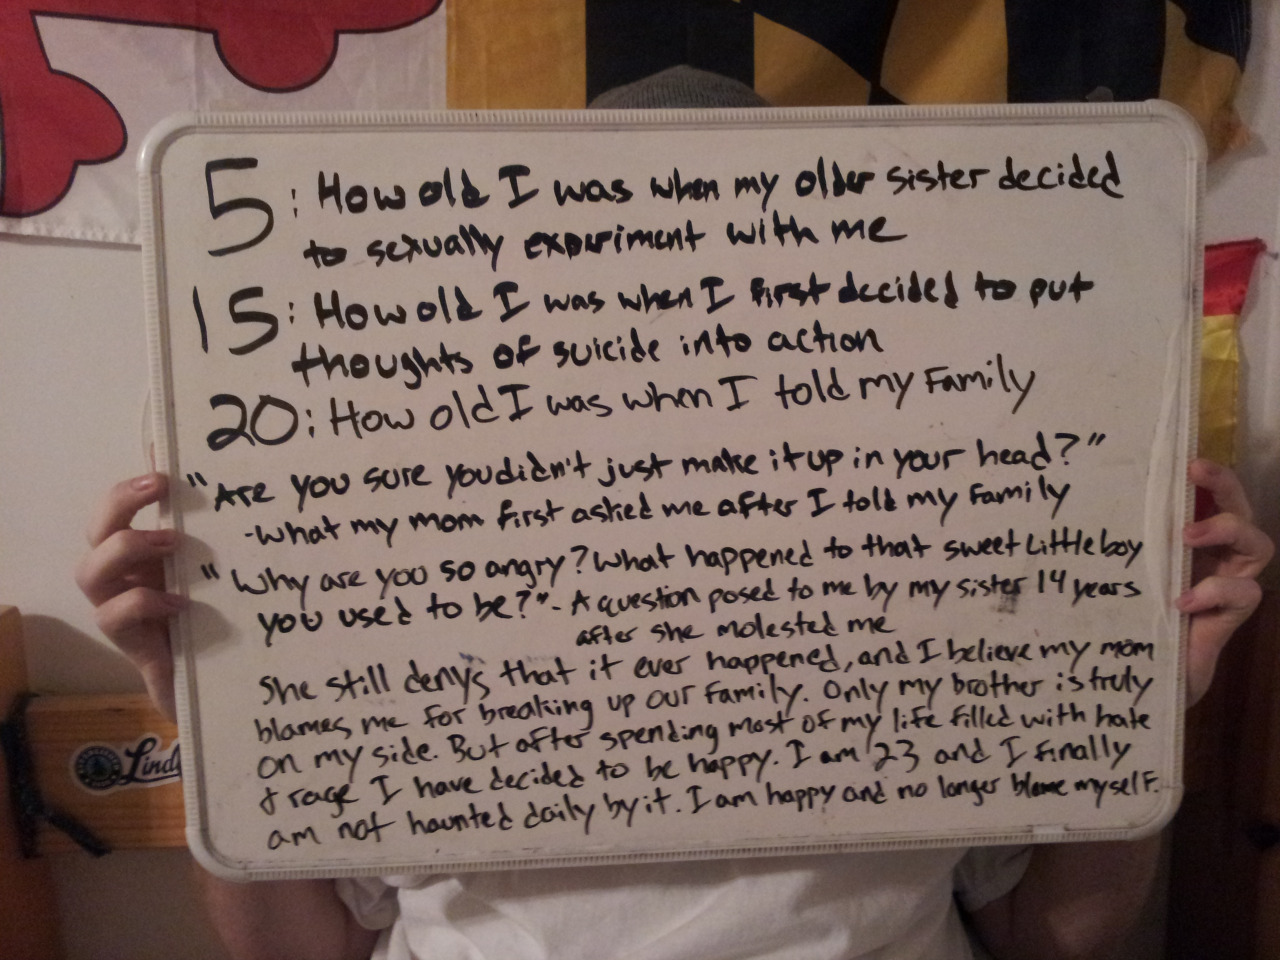 5: How old I was when my older sister decided
to sexually experiment with me
15: How old I was when I first decided to put
thoughts of suicide into action
20: How old I was when I told my Family
"Are you sure you didn't just make it up in your head?"
-What my mom first asked me after I told my Family
"Why are you so angry? What happened to that sweet little boy
you used to be?"- A question posed to me by my sister 14 years
after she molested me
She still denys that it ever happened, and I believe my mom
blames me for breaking up our family. Only my brother is truly
on my side. But after spending most of my life filled with hate
& rage I have decided to be happy. I am 23 and I finally
am not haunted daily by it. I am happy and no longer blame myself.
Lind